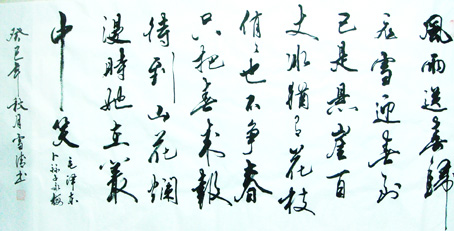 風雨送春歸
飛雪迎春到
已是悬崖百
丈冰猶有花枝
俏〻也不争春
只把春来報
待到山花爛
漫時她在叢
中笑
毛泽东
卜算子咏梅
癸巳年秋月雪書